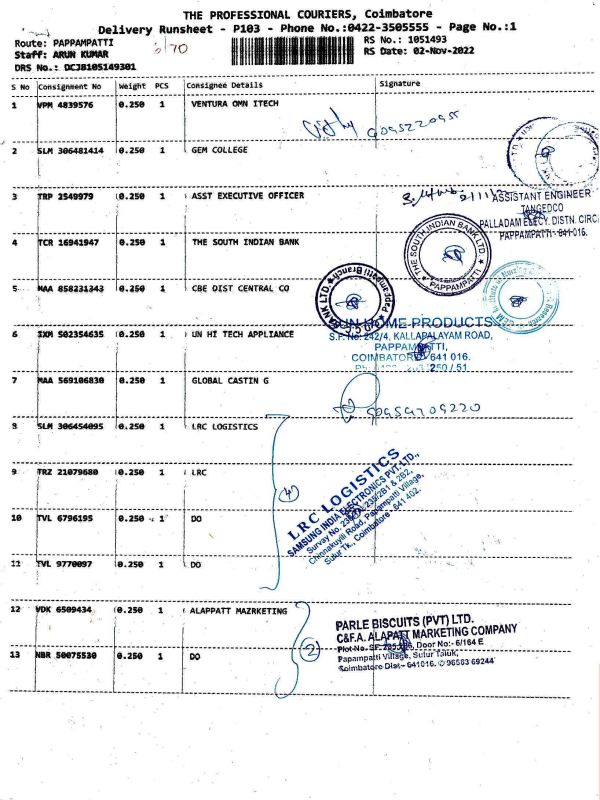 THE PROFESSIONAL COURIERS, Coimbatore
Delivery Runsheet - P103 - Phone No.:0422-3505555 - Page No.:1
Route: PAPPAMPATTI
RS No.: 1051493
Staff: ARUN KUMAR
RS Date: 02-Nov-2022
DRS No.: DCJB105149301
S No Consignment No Weight PCS Consignee Details Signature
1 VPM 4839576 0.250 1 VENTURA OMN ITECH
2 SLM 306481414 0.250 1 GEM COLLEGE
3 TRP 2549979 0.250 1 ASST EXECUTIVE OFFICER
ASSISTANT ENGINEER
TANGEDCO
PALLADAM ELECY. DISTN. CIRC
PAPPAMPATTI - 641 016.
4 TCR 16941947 0.250 1 THE SOUTH INDIAN BANK
THE SOUTH INDIAN BANK LTD.
PAPPAMPATTI
5 MAA 858231343 0.250 1 CBE DIST CENTRAL CO
BANK LTD. Pappampatti Branch
6 IXM 502354635 0.250 1 UN HI TECH APPLIANCE
HOME PRODUCTS
S.F. No. 242/4, KALLAPALAYAM ROAD,
PAPPAMPATTI,
COIMBATORE 641 016.
250 / 51
7 MAA 569106830 0.250 1 GLOBAL CASTIN G
8 SLM 306454095 0.250 1 LRC LOGISTICS
9 TRZ 21079680 0.250 1 LRC
10 TVL 6796195 0.250 1 DO
11 TVL 9770097 0.250 1 DO
(4)
LRC LOGISTICS
SAMSUNG INDIA ELECTRONICS PVT. LTD.,
Chinnakuyili Road, Pappampatti Village,
Sulur Tk., Coimbatore - 641 402.
12 VDK 6509434 0.250 1 ALAPPATT MAZRKETING
13 NBR 50075530 0.250 1 DO
(2)
PARLE BISCUITS (PVT) LTD.
C&F.A. ALAPATT MARKETING COMPANY
Door No:- 6/164 E
Papampatti Village, Sulur Taluk,
Coimbatore Dist- 641016. ✆ 96563 69244